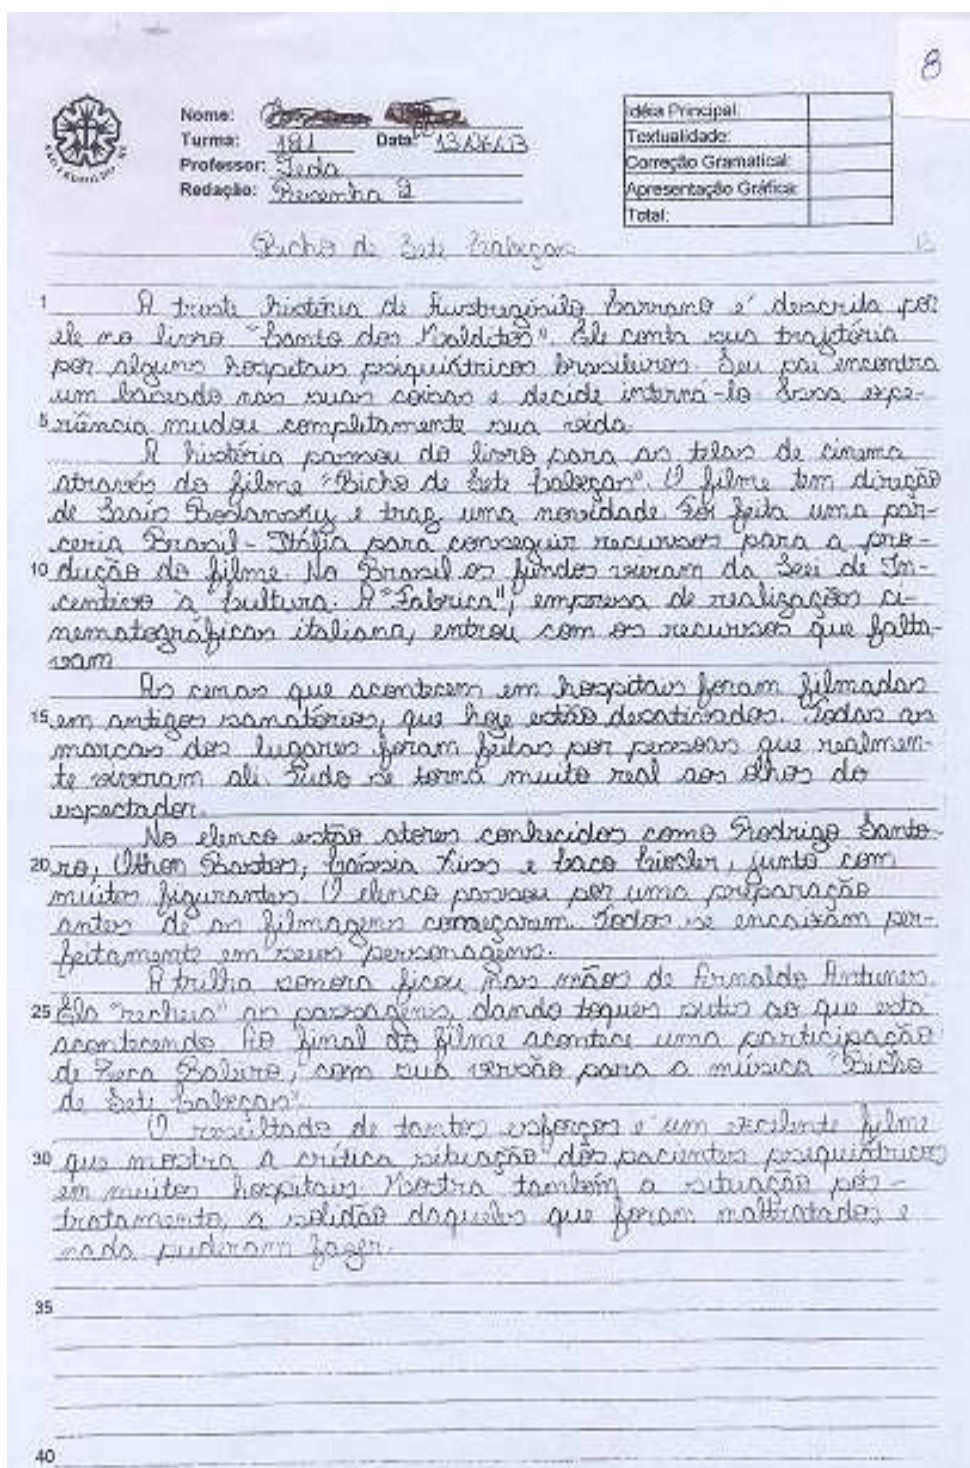 8
Nome:
Turma: 181 Data:
Professor: Ieda
Redação: Resenha 2
Idéia Principal:
Textualidade:
Correção Gramatical:
Apresentação Gráfica:
Total:
Bicho de Sete Cabeças
1 A triste história de Austregésilo Carrano é descrita por
ele no livro "Canto dos Malditos". Ele conta sua trajetória
por alguns hospitais psiquiátricos brasileiros. Seu pai encontra
um baseado nas suas coisas e decide interná-lo. Essa expe-
5 riência mudou completamente sua vida.
A história passou do livro para as telas de cinema
através do filme "Bicho de Sete Cabeças". O filme tem direção
de Laís Bodansky e traz uma novidade. Foi feita uma par-
ceria Brasil-Itália para conseguir recursos para a pro-
10 dução do filme. No Brasil os fundos vieram da Lei de In-
centivo à Cultura. A "Fabrica", empresa de realizações ci-
nematográficas italiana, entrou com os recursos que falta-
vam
As cenas que acontecem em hospitais foram filmadas
15 em antigos sanatórios, que hoje estão desativados. Todas as
marcas dos lugares foram feitas por pessoas que realmen-
te viveram ali. Tudo se torna muito real aos olhos do
espectador.
No elenco estão atores conhecidos como Rodrigo Santo-
20 ro, Othon Bastos, Cássia Kiss e Caco Ciocler, junto com
muitos figurantes. O elenco passou por uma preparação
antes de as filmagens começarem. Todos se encaixam per-
feitamente em seus personagens.
A trilha sonora ficou nas mãos de Arnaldo Antunes.
25 Ela "recheia" as passagens, dando toques sutis ao que está
acontecendo. Ao final do filme acontece uma participação
de Zeca Baleiro, com sua versão para a música "Bicho
de Sete Cabeças".
O resultado de tantos esforços é um excelente filme
30 que mostra a crítica situação dos pacientes psiquiátricos
em muitos hospitais. Mostra também a situação pós-
tratamento, a solidão daqueles que foram maltratados e
nada puderam fazer.
35
40